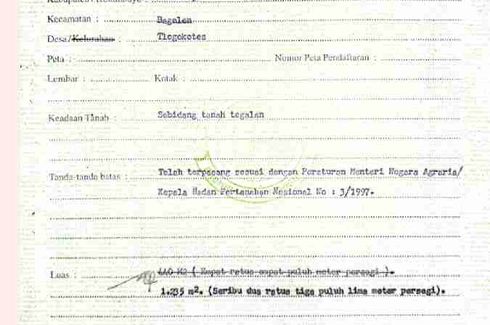 Kecamatan : Bagelen
Desa/Kelurahan : Tlogokotes
Peta : Nomor Peta Pendaftaran :
Lembar : Kotak :
Keadaan Tanah : Sebidang tanah tegalan
Tanda-tanda batas : Telah terpasang sesuai dengan Peraturan Menteri Negara Agraria/
Kepala Badan Pertanahan Nasional No : 3/1997.
Luas : 440 M2 ( Empat ratus empat puluh meter persegi ).
1.235 m2. (Seribu dua ratus tiga puluh lima meter persegi).